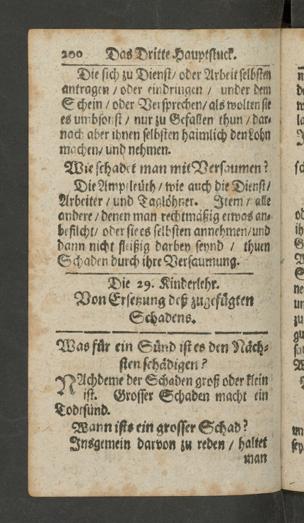 200 Das Dritte Hauptstuck.
Die sich zu Dienst/ oder Arbeit selbsten
antragen/ oder eindringen/ under dem
Schein/ oder Versprechen/ als wolten sie
es umbsonst/ nur zu Gefallen thun/ dar-
nach aber ihnen selbsten haimlich den Lohn
machen/ und nehmen.
Wie schadet man mit Versaumen?
Die Amptleüth/ wie auch die Dienst/
Arbeiter/ und Taglöhner. Item/ alle
andere/ denen man rechtmäßig etwas an-
befilcht/ oder sie es selbsten annehmen/ und
dann nicht fleißig darbey seynd/ thuen
Schaden durch ihre Versaumung.
Die 29. Kinderlehr.
Von Ersetzung deß zugefügten
Schadens.
Was für ein Sünd ist es den Näch-
sten schädigen?
NAchdeme der Schaden groß oder klein
ist. Grosser Schaden macht ein
Todtsünd.
Wann ists ein grosser Schad?
Insgemein darvon zu reden/ haltet
man